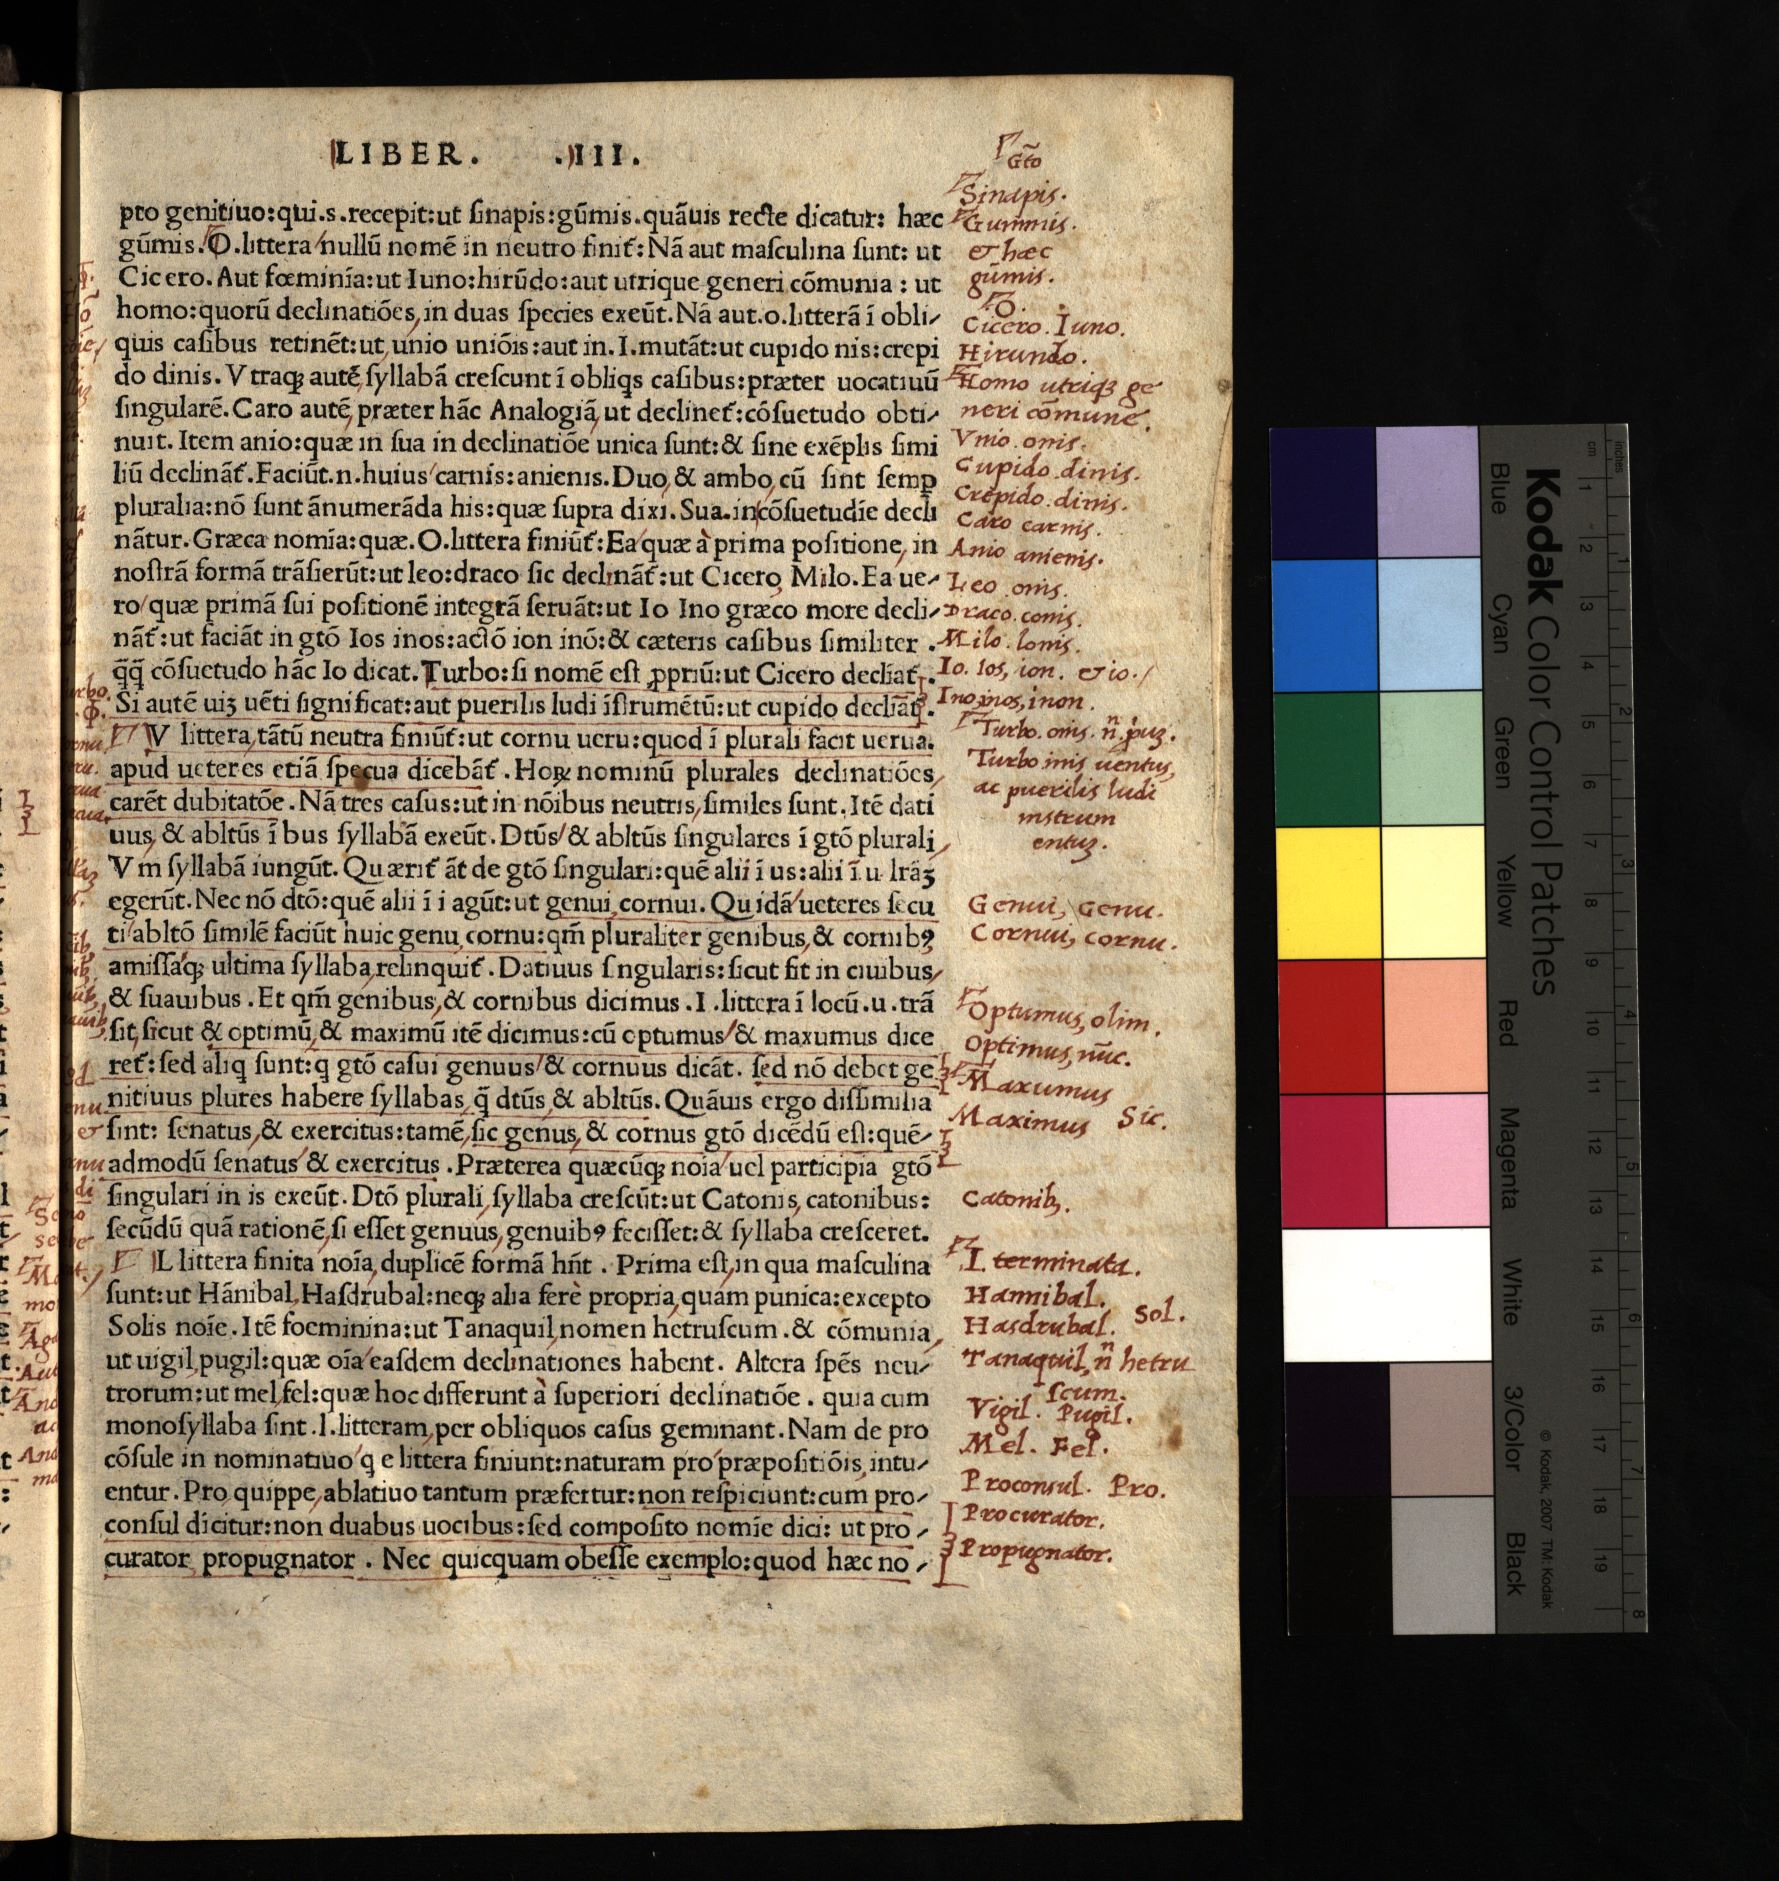 LIBER. .III.
pto genitiuo:qui.s.recepit:ut ſinapis:gūmis.quāuis recte dicatur: hæc
gūmis.O.littera nullū nomē in neutro finiť:Nā aut maſculina ſunt: ut
Cicero.Aut fœminía:ut Iuno:hirūdo:aut utrique generi cōmunia : ut
homo:quorū declinatiōes,in duas ſpecies exeūt.Nā aut.o.litterā ī obli/
quis caſibus retinēt:ut,unio uniōis:aut in.I.mutāt:ut cupido nis:crepi
do dinis.Vtraqꝫ autē,ſyllabā creſcunt ī obliqs caſibus:præter uocatiuū
ſingularē.Caro autē,præter hāc Analogiā,ut declineť:cōſuetudo obti/
nuit. Item anio:quæ in ſua in declinatiōe unica ſunt:& ſine exēplis ſimi
liū declināť.Faciūt.n.huius carnis:anienis.Duo,& ambo,cū ſint ſemꝑ
pluralia:nō ſunt ānumerāda his:quæ ſupra dixi.Sua.in cōſuetudíe decli
nātur.Græca nomía:quæ.O.littera finiūť:Ea quæ à prima poſitione,in
noſtrā formā trāſierūt:ut leo:draco ſic declināť:ut Cicero, Milo.Ea ue/
ro quæ primā ſui poſitionē integrā ſeruāt:ut Io Ino græco more decli/
nāť:ut faciāt in gtō Ios inos:actō ion inō:& cæteris caſibus ſimiliter .
q̄q̄ cōſuetudo hāc Io dicat.Turbo:ſi nomē eſt ꝓpriū:ut Cicero declīať.
Si autē uiꝫ uēti ſignificat:aut puerilis ludi īſtrumētū:ut cupido declīať.
V littera,tātū neutra finiūť:ut cornu ueru:quod ī plurali facit uerua.
apud ueteres etiā ſpecua dicebāť.Hoꝝ nominū plurales declinatiōes,
carēt dubitatōe.Nā tres caſus:ut in nōibus neutris,ſimiles ſunt.Itē dati
uus,& abltūs ī bus ſyllabā exeūt.Dtūs & abltūs ſingulares ī gtō plurali,
Vm ſyllabā iungūt.Quæriť āt de gtō ſingulari:quē alii ī us:alii ī u lrāꝫ
egerūt.Nec nō dtō:quē alii ī i agūt:ut genui,cornui.Quidā ueteres ſecu
ti abltō ſimilē faciūt huic genu,cornu:qm̄ pluraliter genibus,& cornibꝰ
amiſſaqꝫ ultima ſyllaba,relinquiť.Datiuus ſngularis:ſicut fit in ciuibus,
& ſuauibus.Et qm̄ genibus,& cornibus dicimus.I.littera ī locū.u.trā
ſit,ſicut & optimū,& maximū itē dicimus:cū optumus & maxumus dice
reť:ſed aliq ſunt:q̄ gtō caſui genuus & cornuus dicāt. ſed nō debet ge
nitiuus plures habere ſyllabas,q̄ dtūs,& abltūs.Quāuis ergo diſſimilia
ſint: ſenatus,& exercitus:tamē,ſic genus,& cornus gtō dicēdū eſt:quē/
admodū ſenatus & exercitus.Præterea quæcūqꝫ noia uel participia gtō
ſingulari in is exeūt.Dtō plurali,ſyllaba creſcūt:ut Catonis,catonibus:
ſecūdū quā rationē,ſi eſſet genuus,genuibꝰ feciſſet:& ſyllaba creſceret.
L littera finita noīa,duplicē formā hn̄t . Prima eſt,in qua maſculina
ſunt:ut Hānibal,Haſdrubal:neqꝫ alia ferè propria,quàm punica:excepto
Solis noíe.Itē foeminina:ut Tanaquil,nomen hetruſcum.& cōmunia,
ut uigil,pugil:quæ oīa eaſdem declinationes habent. Altera ſpēs neu/
trorum:ut mel,fel:quæ hoc differunt à ſuperiori declinatiōe. quia cum
monoſyllaba ſint.l.litteram,per obliquos caſus geminant.Nam de pro
cōſule in nominatiuo q e littera finiunt:naturam pro præpoſitiōis,intu/
entur.Pro,quippe,ablatiuo tantum præfertur:non reſpiciunt:cum pro/
conſul dicitur:non duabus uocibus:ſed compoſito nomíe dici: ut pro/
curator propugnator . Nec quicquam obeſſe exemplo:quod hæc no/
Gtō
Sinapis.
Gummis.
& hæc
gūmis.
O.
Cicero. Iuno.
Hirundo.
Homo utriqꝫ ge
neri cōmune.
Vnio. onis.
Cupido. dinis.
Crepido. dinis.
Caro carnis.
Anio anienis.
Leo. onis.
Draco. conis.
Milo. lonis.
Io. Ios, ion. & io.
Ino, inos, inon.
Turbo. onis.
Turbo inis uentus,
ac puerilis ludi
instrum
entuꝫ.
Genui, Genu.
Cornui, cornu.
Optumus, olim.
Optimus, nūc.
Maxumus
Maximus Sic.
Catonibꝫ.
L terminata.
Hannibal.
Hasdrubal. Sol.
Tanaquil, n hetru
scum.
Vigil. Pugil.
Mel. Fel.
Proconsul. Pro.
Procurator.
Propugnator.
Kodak Color Control Patches
Blue
Cyan
Green
Yellow
Red
Magenta
White
3/Color
Black
© Kodak, 2007 TM: Kodak
cm 1 2 3 4 5 6 7 8 9 10 11 12 13 14 15 16 17 18 19
inches 1 2 3 4 5 6 7 8